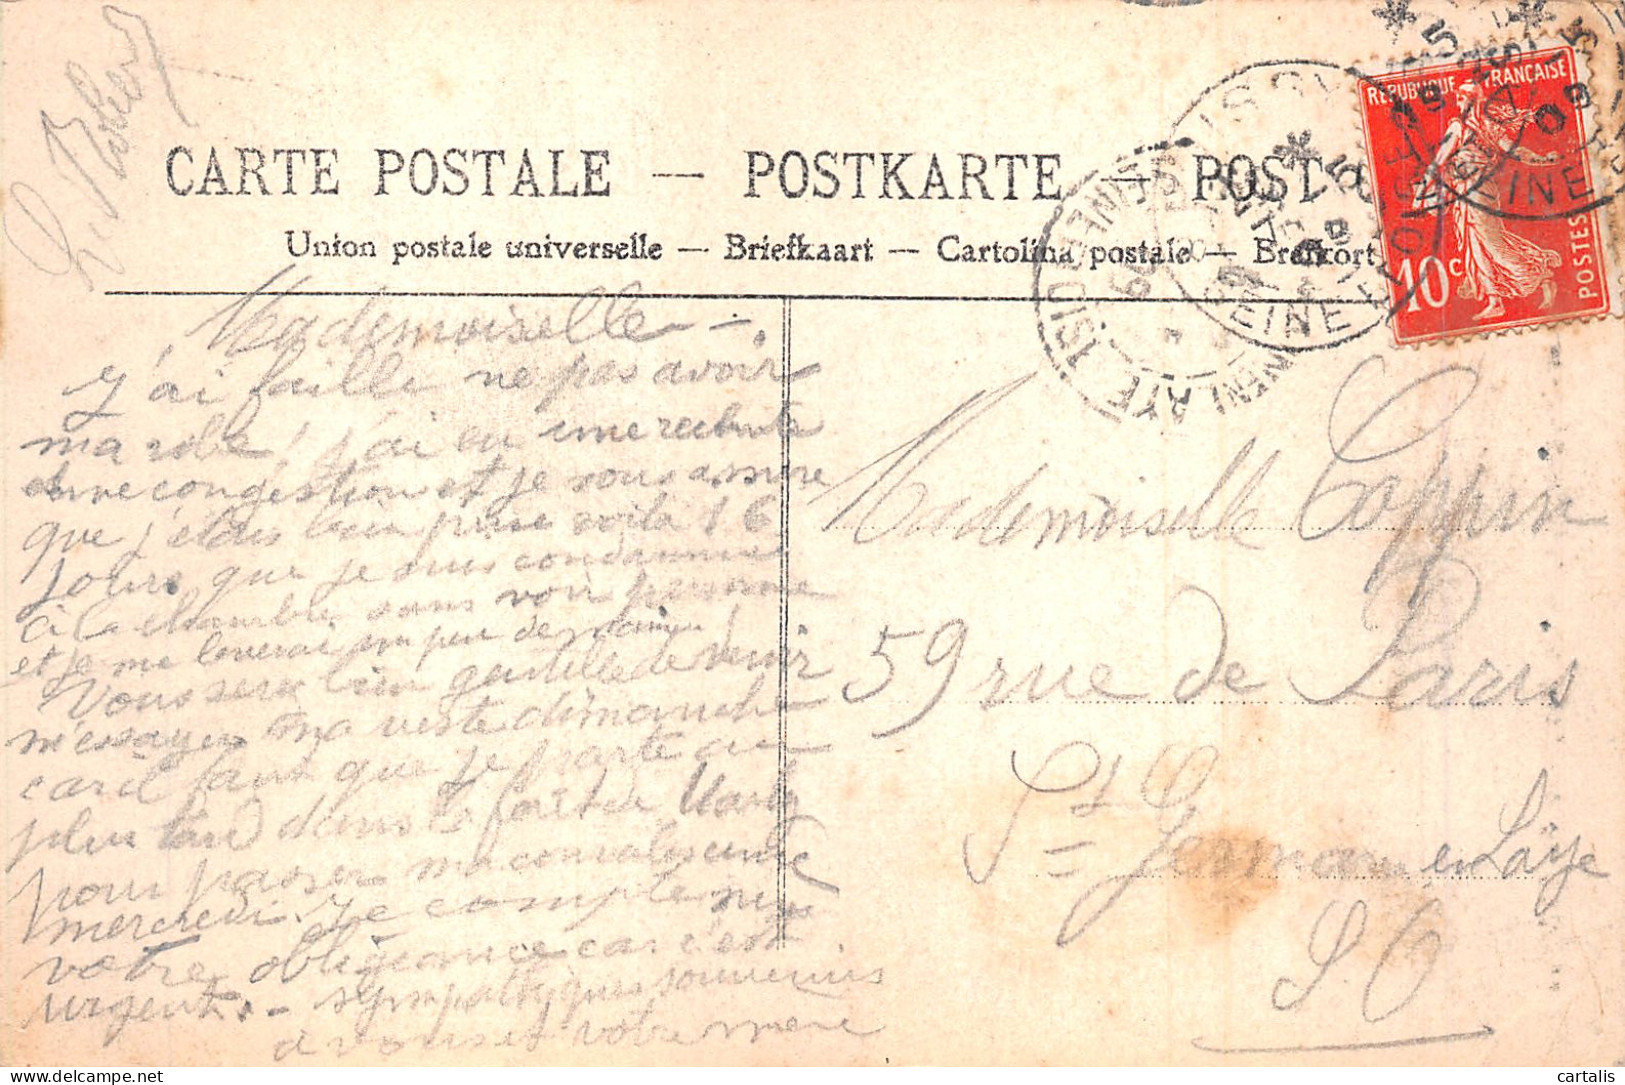 CARTE POSTALE — POSTKARTE — POSTCA
Union postale universelle — Briefkaart — Cartolina postale — Brefkort
REPUBLIQUE FRANÇAISE
10c
POSTES
Mademoiselle —.
J'ai failli ne pas avoir
ma robe, j'ai eu une rechute
de congestion et je vous assure
que j'étais bien prise voilà 16
jours que je suis condamnée
à la chambre sans voir personne
et je me lèverai un peu demain
Vous serez bien gentille de venir
m'éssayer ma veste dimanche
car il faut que je parte au
plus tard dans la forêt de Marly
pour passer ma convalescence
mercredi. Je compte sur
votre obligeance car c'est
urgent. - sympathiques souvenirs
à vous et votre mère
Mademoiselle Coppin
59 rue de Paris
St Germain en Laye
S. O
cartalis